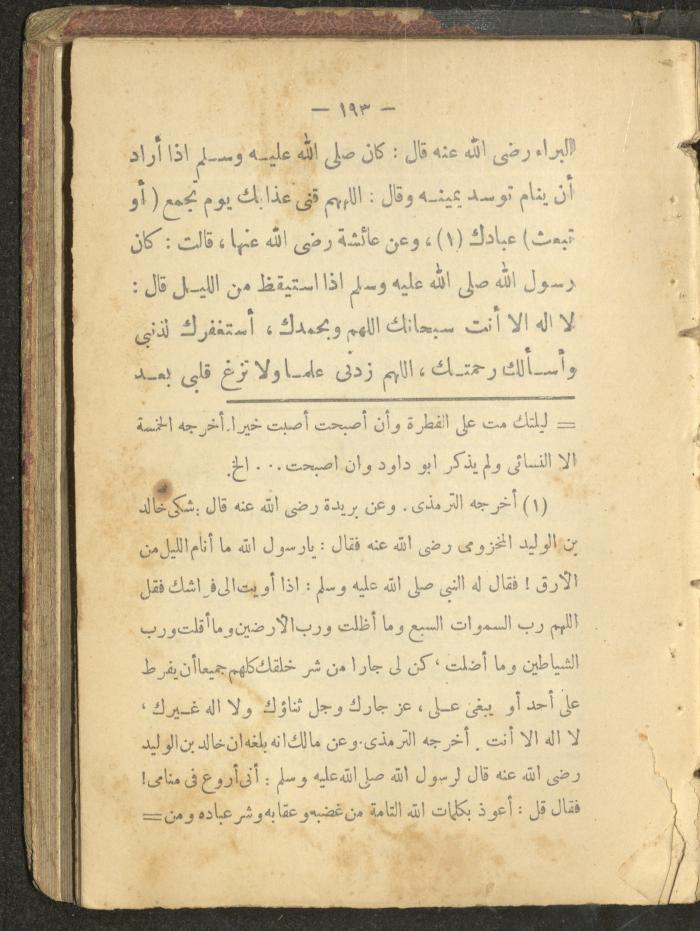 — ١٩٣ —
البراء رضى الله عنه قال : كان صلى الله عليـه وسـلم اذا أراد
أن ينام توسد يمينـه وقال : اللهم قنى عذابك يوم تجمع ( أو
تبعث ) عبادك (١) ، وعن عائشة رضى الله عنها ، قالت : كان
رسول الله صلى الله عليه وسلم اذا استيقظ من الليـل قال :
لا اله الا أنت سبحانك اللهم وبحمدك ، أستغفرك لذنبى
وأسـألك رحمتـك ، اللهم زدنى علمـا ولا تزغ قلبى بعـد
= ليلتك مت على الفطرة وأن أصبحت أصبت خيرا. أخرجه الخمسة
الا النسائى ولم يذكر ابو داود وان اصبحت... الخ.
(١) أخرجه الترمذى. وعن بريدة رضى الله عنه قال : شكى خالد
بن الوليد المخزومى رضى الله عنه فقال : يارسول الله ما أنام الليل من
الأرق ! فقال له النبى صلى الله عليه وسلم : اذا أويت الى فراشك فقل
اللهم رب السموات السبع وما أظلت ورب الأرضين وما أقلت ورب
الشياطين وما أضلت ، كن لى جارا من شر خلقك كلهم جميعا أن يفرط
على أحد أو يبغى عـلى ، عز جارك وجل ثناؤك ولا اله غـيرك ،
لا اله الا أنت . أخرجه الترمذى. وعن مالك انه بلغه ان خالد بن الوليد
رضى الله عنه قال لرسول الله صلى الله عليه وسلم : أنى أروع فى منامى !
فقال قل : أعوذ بكلمات الله التامة من غضبه وعقابه وشر عباده ومن =